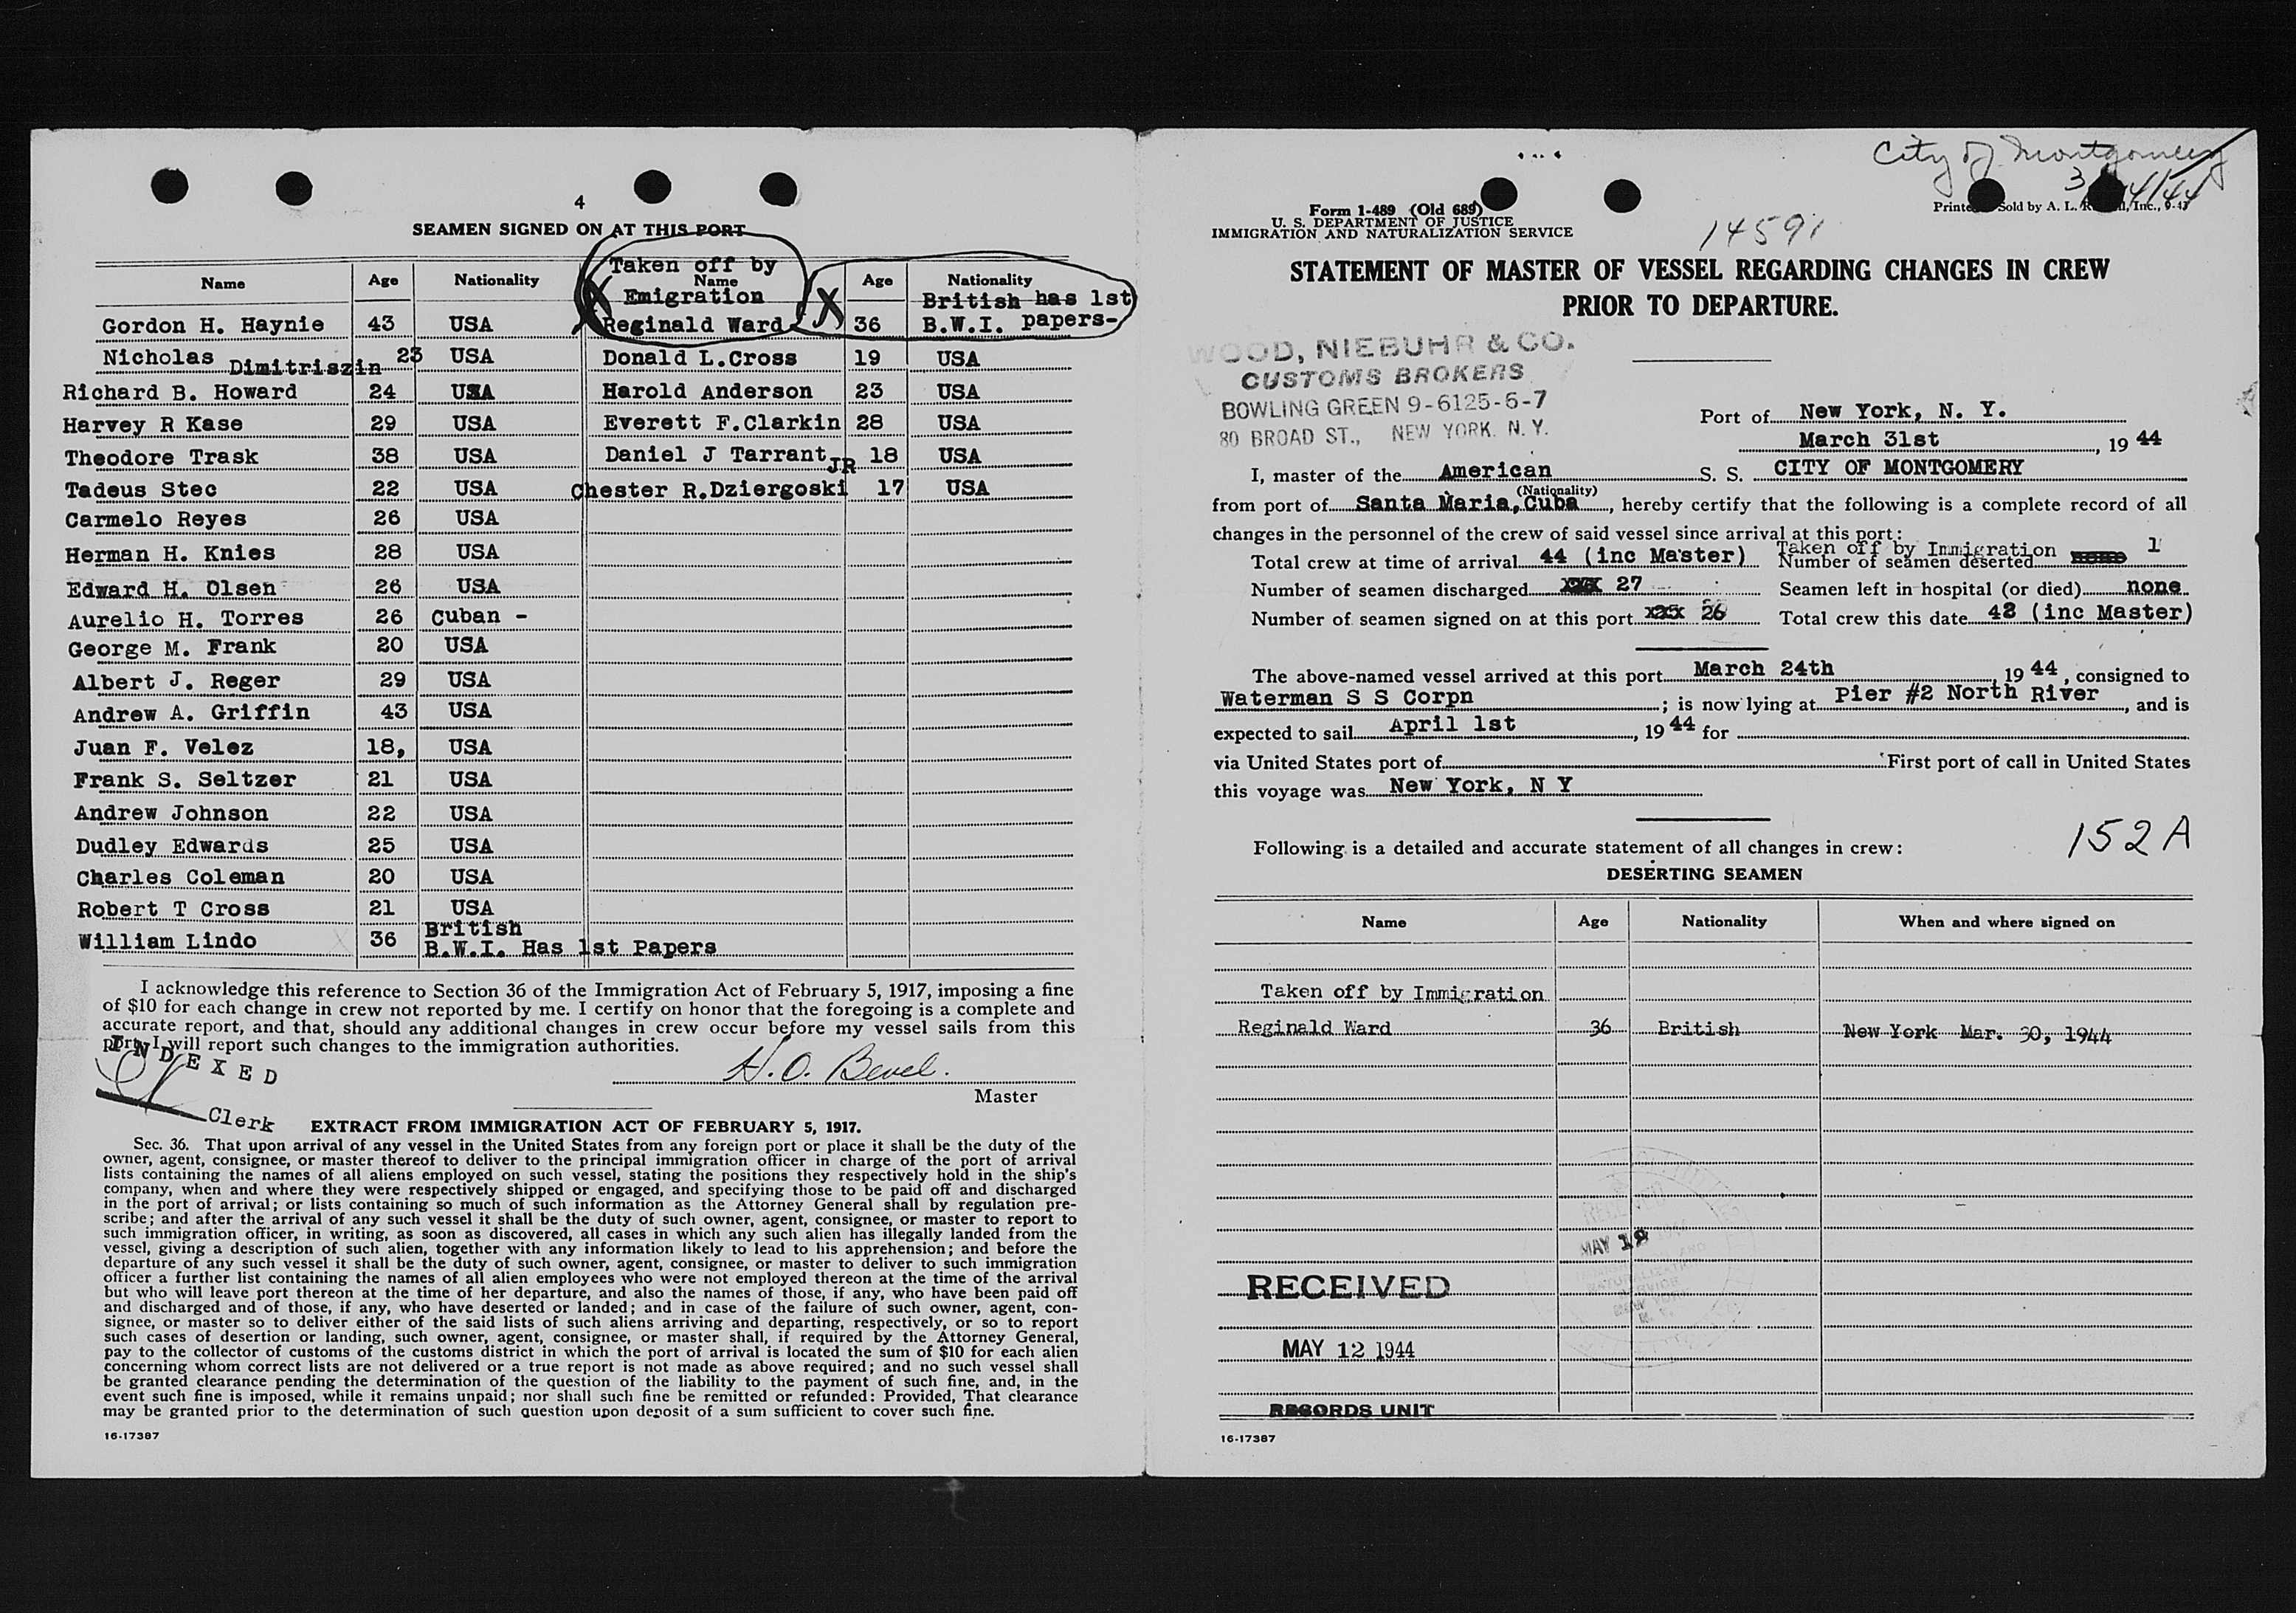 4
SEAMEN SIGNED ON AT THIS PORT
Name Age Nationality Name Age Nationality
Taken off by
Emigration
Gordon H. Haynie 43 USA Reginald Ward 36 British has 1st
B.W.I. papers-
Nicholas Dimitriszin 23 USA Donald L.Cross 19 USA
Richard B. Howard 24 USA Harold Anderson 23 USA
Harvey R Kase 29 USA Everett F.Clarkin 28 USA
Theodore Trask 38 USA Daniel J Tarrant JR 18 USA
Tadeus Stec 22 USA Chester R.Dziergoski 17 USA
Carmelo Reyes 26 USA
Herman H. Knies 28 USA
Edward H. Olsen 26 USA
Aurelio H. Torres 26 Cuban -
George M. Frank 20 USA
Albert J. Reger 29 USA
Andrew A. Griffin 43 USA
Juan F. Velez 18, USA
Frank S. Seltzer 21 USA
Andrew Johnson 22 USA
Dudley Edwards 25 USA
Charles Coleman 20 USA
Robert T Cross 21 USA
William Lindo 36 British
B.W.I. Has 1st Papers
I acknowledge this reference to Section 36 of the Immigration Act of February 5, 1917, imposing a fine
of $10 for each change in crew not reported by me. I certify on honor that the foregoing is a complete and
accurate report, and that, should any additional changes in crew occur before my vessel sails from this
port, I will report such changes to the immigration authorities.
INDEXED
Clerk
H. O. Bevel.
Master
EXTRACT FROM IMMIGRATION ACT OF FEBRUARY 5, 1917.
Sec. 36. That upon arrival of any vessel in the United States from any foreign port or place it shall be the duty of the
owner, agent, consignee, or master thereof to deliver to the principal immigration officer in charge of the port of arrival
lists containing the names of all aliens employed on such vessel, stating the positions they respectively hold in the ship's
company, when and where they were respectively shipped or engaged, and specifying those to be paid off and discharged
in the port of arrival; or lists containing so much of such information as the Attorney General shall by regulation pre-
scribe; and after the arrival of any such vessel it shall be the duty of such owner, agent, consignee, or master to report to
such immigration officer, in writing, as soon as discovered, all cases in which any such alien has illegally landed from the
vessel, giving a description of such alien, together with any information likely to lead to his apprehension; and before the
departure of any such vessel it shall be the duty of such owner, agent, consignee, or master to deliver to such immigration
officer a further list containing the names of all alien employees who were not employed thereon at the time of the arrival
but who will leave port thereon at the time of her departure, and also the names of those, if any, who have been paid off
and discharged and of those, if any, who have deserted or landed; and in case of the failure of such owner, agent, con-
signee, or master so to deliver either of the said lists of such aliens arriving and departing, respectively, or so to report
such cases of desertion or landing, such owner, agent, consignee, or master shall, if required by the Attorney General,
pay to the collector of customs of the customs district in which the port of arrival is located the sum of $10 for each alien
concerning whom correct lists are not delivered or a true report is not made as above required; and no such vessel shall
be granted clearance pending the determination of the question of the liability to the payment of such fine, and, in the
event such fine is imposed, while it remains unpaid; nor shall such fine be remitted or refunded: Provided, That clearance
may be granted prior to the determination of such question upon deposit of a sum sufficient to cover such fine.
16-17387
City of Montgomery
Form 1-489 (Old 689)
U. S. DEPARTMENT OF JUSTICE
IMMIGRATION AND NATURALIZATION SERVICE
Sold by A. L. Inc., 9-43
14591
STATEMENT OF MASTER OF VESSEL REGARDING CHANGES IN CREW
PRIOR TO DEPARTURE.
WOOD, NIEBUHR & CO.
CUSTOMS BROKERS
BOWLING GREEN 9-6125-6-7
80 BROAD ST., NEW YORK. N. Y.
Port of New York, N. Y.
March 31st, 19 44
I, master of the American S. S. CITY OF MONTGOMERY
(Nationality)
from port of Santa Maria, Cuba, hereby certify that the following is a complete record of all
changes in the personnel of the crew of said vessel since arrival at this port:
Taken off by Immigration 1
Total crew at time of arrival 44 (inc Master) Number of seamen deserted none
Number of seamen discharged 27 Seamen left in hospital (or died) none
Number of seamen signed on at this port 26 Total crew this date 42 (inc Master)
The above-named vessel arrived at this port March 24th, 19 44, consigned to
Waterman S S Corpn; is now lying at Pier #2 North River, and is
expected to sail April 1st, 19 44 for
via United States port of First port of call in United States
this voyage was New York, N Y
152 A
Following is a detailed and accurate statement of all changes in crew:
DESERTING SEAMEN
Name Age Nationality When and where signed on
Taken off by Immigration
Reginald Ward 36 British New York Mar. 30, 1944
MAY 12
RECEIVED
MAY 12 1944
RECORDS UNIT
16-17387